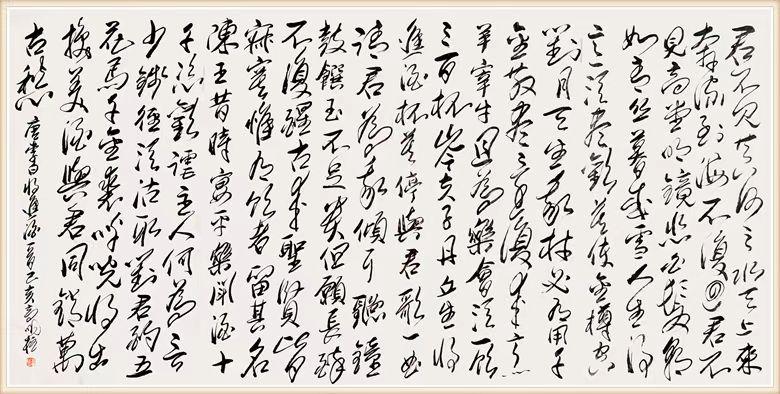 君不見黃河之水天上來
奔流到海不復回君不
見高堂明鏡悲白髮朝
如青絲暮成雪人生得
意須盡歡莫使金樽空
對月天生我材必有用千
金散盡還復來烹
羊宰牛且為樂會須一飲
三百杯岑夫子丹丘生將
進酒杯莫停與君歌一曲
請君為我傾耳聽鐘
鼓饌玉不足貴但願長醉
不復醒古來聖賢皆
寂寞惟有飲者留其名
陳王昔時宴平樂斗酒十
千恣歡謔主人何為言
少錢徑須沽取對君酌五
花馬千金裘呼兒將出
換美酒與君同銷萬
古愁
唐李白將進酒一首己亥